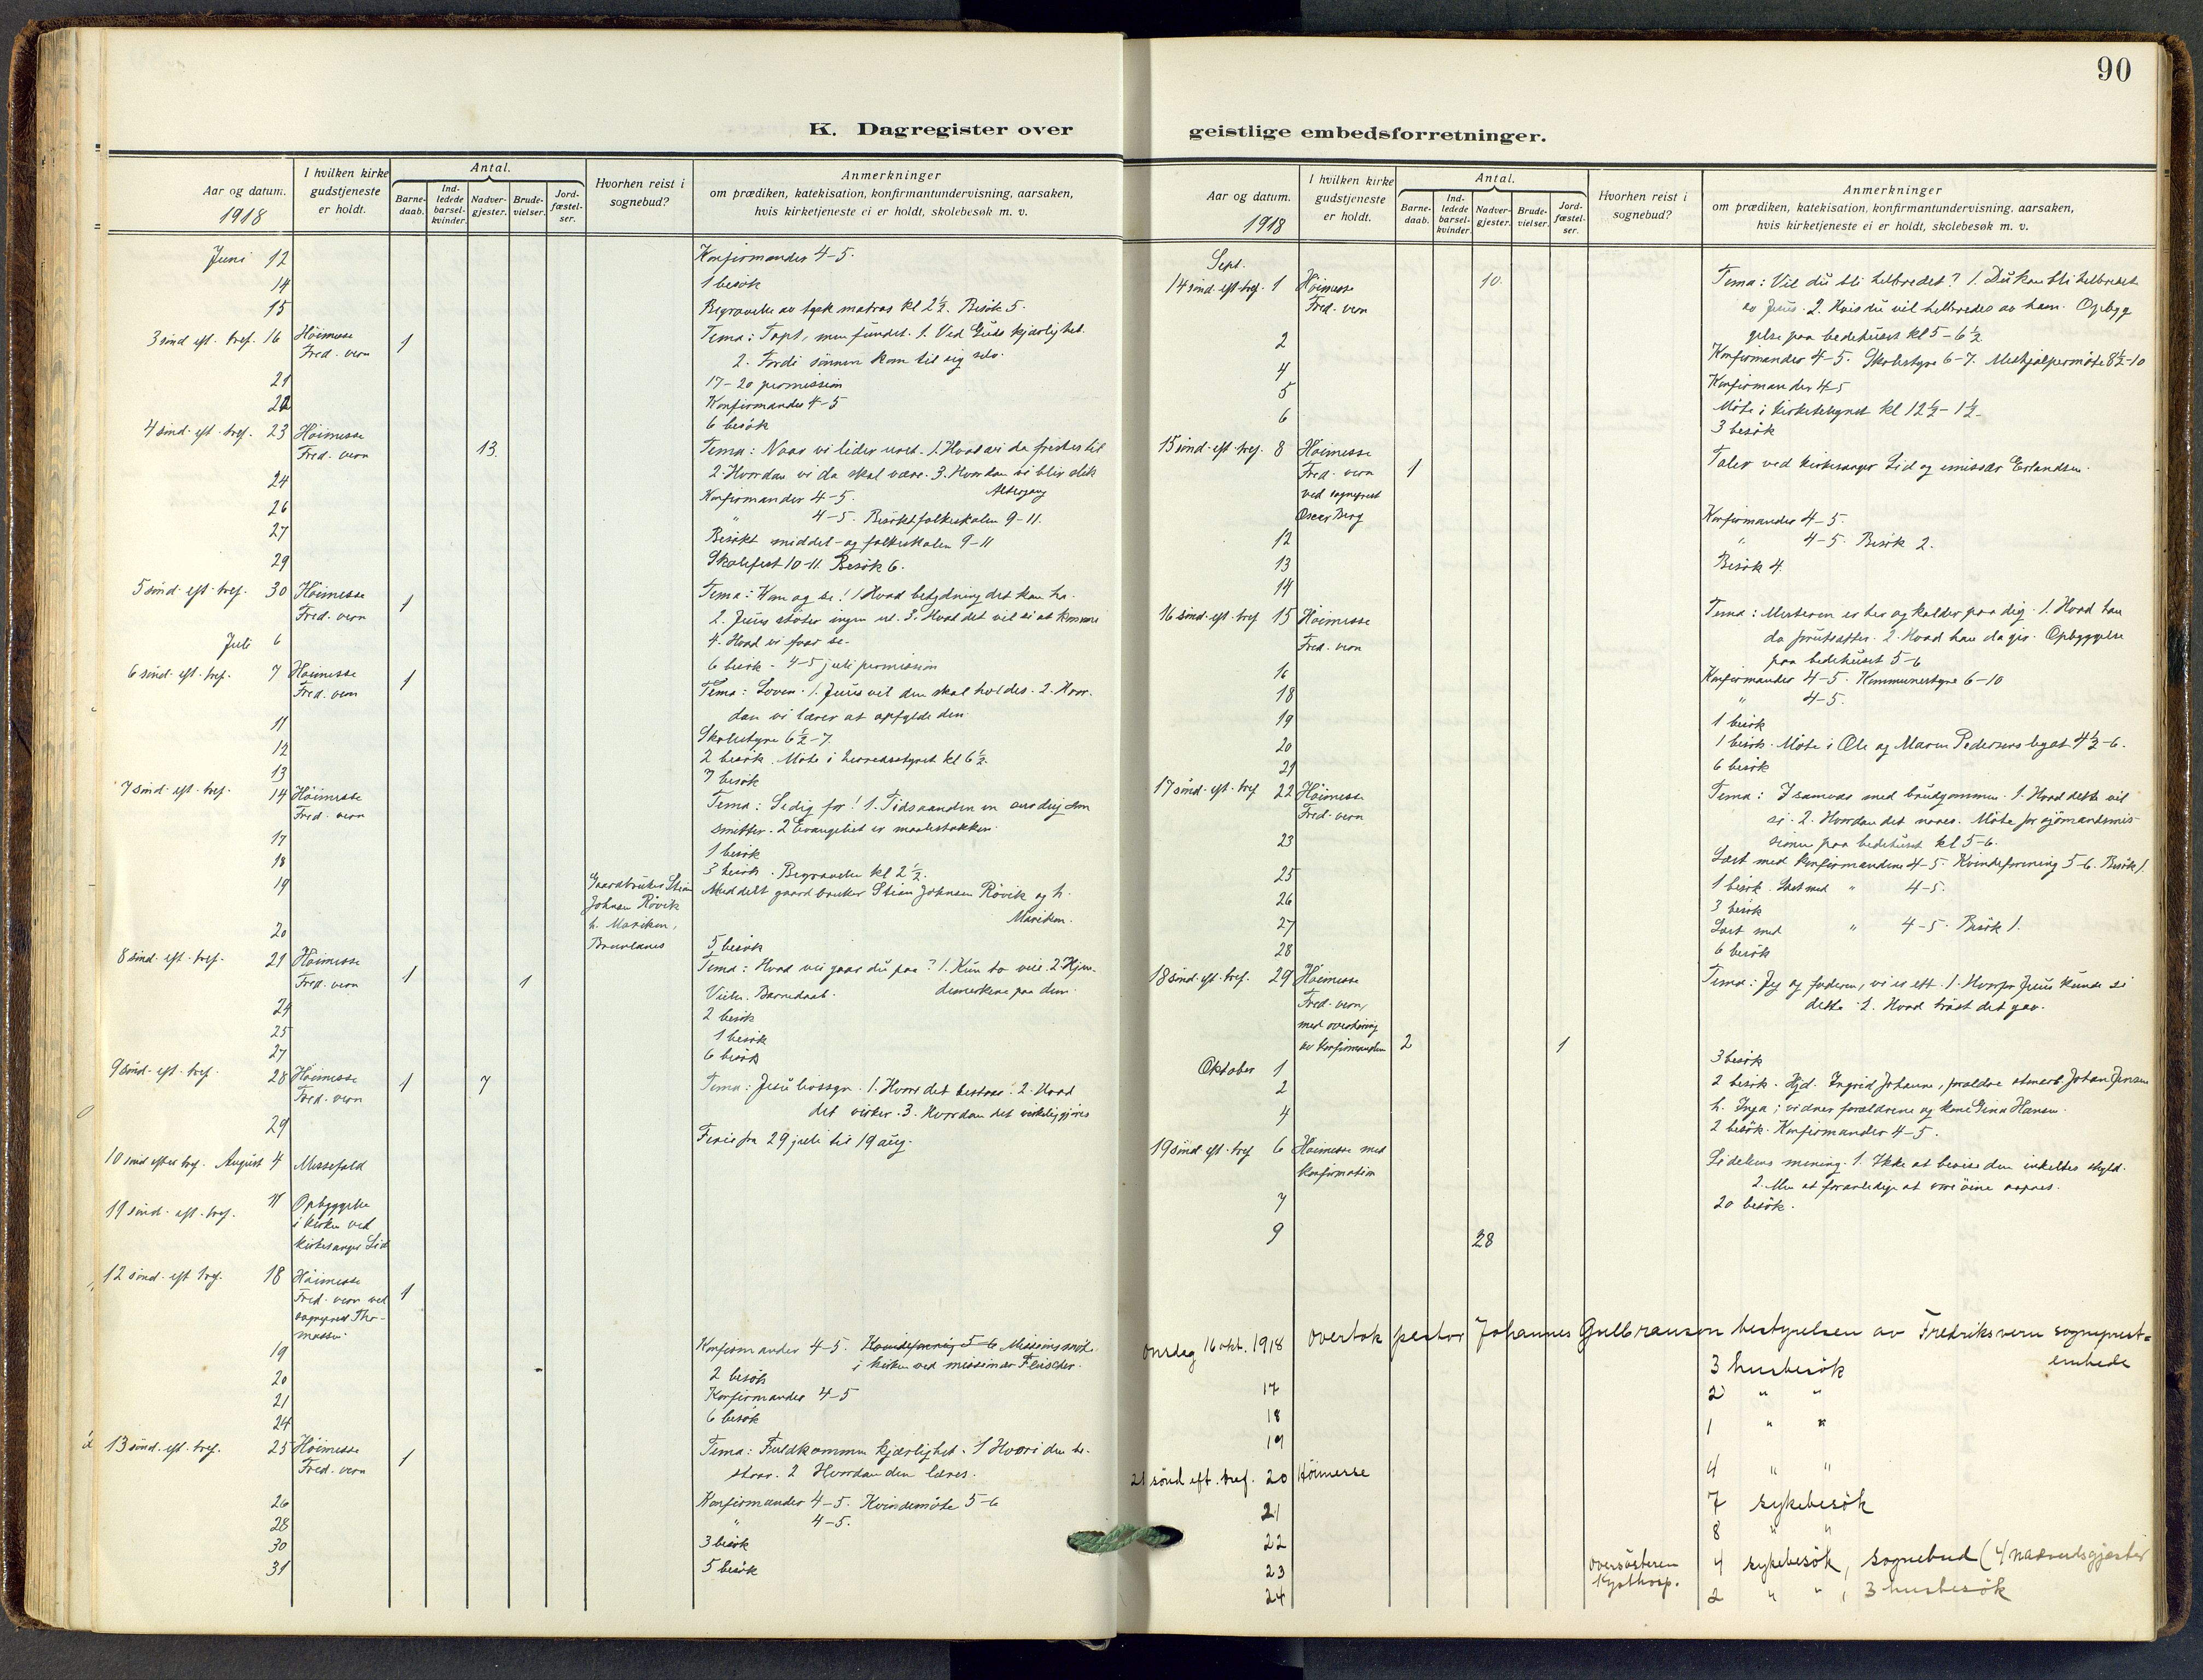 90
K. Dagregister over
Aar og datum.
1918
I hvilken kirke
gudstjeneste
er holdt.
Antal.
Barne-
daab.
Ind-
ledede
barsel-
kvinder.
Nadver-
gjester.
Brude-
vielser.
Jord-
fæstel-
ser.
Hvorhen reist i
sognebud?
Anmerkninger
om prædiken, katekisation, konfirmantundervisning, aarsaken,
hvis kirketjeneste ei er holdt, skolebesøk m. v.
Juni 12 Konfirmander 4-5.
14 1 besök
15 Begravelse av tysk matros kl 2½. Besök 5.
3 sönd eft. tref. 16 Höimesse 1 Tema: Tapt, men fundet. 1. Ved Guds kjærlighet.
Fred. vern 2. Fordi sönnen kom til sig selv.
17-20 permission
21 Konfirmander 4-5
22 6 besök
4 sönd. eft. tref. 23 Höimesse 13. Tema: Naar vi lider uret. 1. Hvad vi da fristes til
Fred. vern 2. Hvordan vi da skal være. 3. Hvordan vi blir slik
Altergang
24 Konfirmander 4-5.
26 " 4-5. Besökt folkeskolen 9-11.
27 Besökt middel- og folkeskolen 9-11
29 Skolefest 10-11. Besök 6.
5 sönd. eft. tref. 30 Höimesse 1 Tema: Kom og se! 1. Hvad betydning det kan ha.
Fred. vern 2. Jesus stöter ingen ut. 3. Hvad det vil si at komme
4. Hvad vi faar se.
Juli 6 6 besök - 4-5 juli permission
6 sönd. eft. tref. 7 Höimesse 1 Tema: Loven. 1. Jesus vil den skal holdes. 2. Hvor-
Fred. vern dan vi lærer at opfylde den.
11 Skolestyre 6½-7.
12 2 besök. Möte i herredsstyret kl 6½.
13 7 besök
7 sönd. eft. tref. 14 Höimesse Tema: Se dig for! 1. Tidsaanden om dig den
Fred. vern smitter. 2 Evangeliet er maalestokken.
17 1 besök
18 3 besök. Begravelse kl 2½.
19 Gaardbruker Stian Meddelt gaardbruker Stian Johnsen Rövik og h.
Johnsen Rövik Mariken.
h. Mariken,
Brunlanes
20 5 besök
8 sönd. eft. tref. 21 Höimesse 1 1 Tema: Hvad vei gaar du paa? 1. Kun to veie. 2. Kjen-
Fred. vern Vielse. Barnedaab. demerkene paa dem.
24 2 besök
25 1 besök
27 6 besök
9 sönd. eft. tref. 28 Höimesse 1 7 Tema: Jesu livssyn. 1. Hvori det bestaar. 2. Hvad
Fred. vern det virker. 3. Hvordan det virkeliggjöres
29 Ferie fra 29 juli til 19 aug.
10 sönd efter tref. August 4 Messefald
11 sönd. eft. tref. 11 Opbyggelse
i kirken ved
kirkesanger Lid
12 sönd. eft tref. 18 Höimesse 1
Fred. vern ved
sogneprest Tho-
massen.
19 Konfirmander 4-5. Kvindeforening 5-6 Missionsmöte
i kirken ved missionær Fleischer.
20 2 besök
21 Konfirmander 4-5
24 6 besök
13 sönd. eft. tref. 25 Höimesse 1 Tema: Fuldkommen kjærlighet. 1 Hvori den be-
Fred. vern staar. 2 Hvordan den læres.
26 Konfirmander 4-5. Kvindemöte 5-6
28 " 4-5.
30 3 besök
31 5 besök
geistlige embedsforretninger.
Aar og datum.
1918
I hvilken kirke
gudstjeneste
er holdt.
Antal.
Barne-
daab.
Ind-
ledede
barsel-
kvinder.
Nadver-
gjester.
Brude-
vielser.
Jord-
fæstel-
ser.
Hvorhen reist i
sognebud?
Anmerkninger
om prædiken, katekisation, konfirmantundervisning, aarsaken,
hvis kirketjeneste ei er holdt, skolebesøk m. v.
Sept.
14 sönd. eft. tref. 1 Höimesse 10. Tema: Vil du bli helbredet? 1. Du kan bli helbredet
Fred. vern av Jesus. 2. Hvis du vil helbredes av ham. Opbyg
gelse paa bedehuset kl 5-6½
2 Konfirmander 4-5. Skolestyre 6-7. Medhjælpermöte 8½-10
4 Konfirmander 4-5
5 Möte i kirketilsynet kl 12½-1½.
6 3 besök
15 sönd. eft. tref. 8 Höimesse 1 Taler ved kirkesanger Lid og emissær Erlandsen.
Fred. vern
ved sogneprest
Oscar Berg
12 Konfirmander 4-5.
13 " 4-5. Besök 2.
14 Besök 4.
16 sönd. eft. tref 15 Höimesse Tema: Mesteren er her og kalder paa dig. 1. Hvad han
Fred. vern da forutsætter. 2. Hvad han da gir. Opbyggelse
paa bedehuset 5-6
16 Konfirmander 4-5. Kommunestyre 6-10
18 " 4-5.
19 1 besök
20 1 besök. Möte i Ole og Maren Pedersens legat 4½-6.
21 6 besök
17 sönd. eft. tref 22 Höimesse Tema: I samvær med brudgommen. 1. Hvad dette vil
Fred. vern si. 2. Hvordan det naaes. Möte for sjömandsmis-
sionen paa bedehuset kl 5-6.
23 Læst med konfirmandene 4-5. Kvindeforening 5-6. Besök 1.
25 1 besök. Læst med " 4-5.
26 3 besök
27 Læst med " 4-5. Besök 1.
28 6 besök
18 sönd. eft. tref. 29 Höimesse Tema: Jeg og faderen, vi er ett. 1. Hvorfor Jesus kunde si
Fred. vern, dette. 2. Hvad tröst det gav.
med overhöring
av konfirmanden 2 1
Oktober 1 3 besök
2 2 besök. Hjd. Ingrid Johanne, forældre Johan Jensen
h. Inga; vidner forældrene og kone Gina Hansen.
4 2 besök. Konfirmander 4-5.
19 sönd. eft. tref 6 Höimesse med Lidelsens mening. 1. Ikke at bevise den enkeltes skyld.
konfirmation 2. Men at foranledige at vore öine aapnes.
7 20 besök.
9 28
Onsdag 16 okt. 1918 overtok pastor Johannes Gulbranson bestyrelsen av Fredriksvern sogneprest=
embede
3 husbesök
17 2 " "
18 1 " "
19 4 " "
21 sönd eft. tref. 20 Höimesse
21 7 sykebesök
22 8 " "
23 Oversösteren 4 sykebesök, sognebud (4 nadverdsgjæster
Kysthosp.
24 2 " ", 3 husbesök